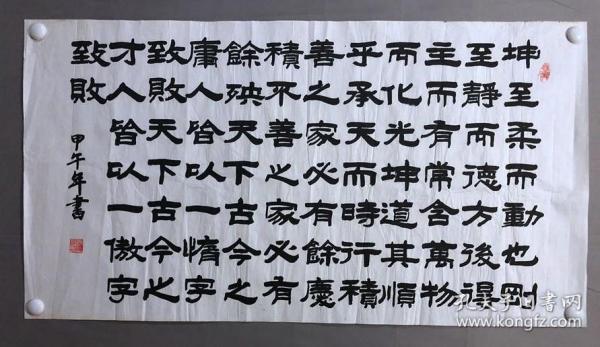 坤至柔而動也剛
至靜而德方後得
主而有常含萬物
而化光坤道其順
乎承天而時行積
善之家必有餘慶
積不善之家必有
餘殃天下古今之
庸人皆以一惰字
致敗天下古今之
才人皆以一傲字
致敗
甲午年書
孔夫子旧书网
www.kongfz.com